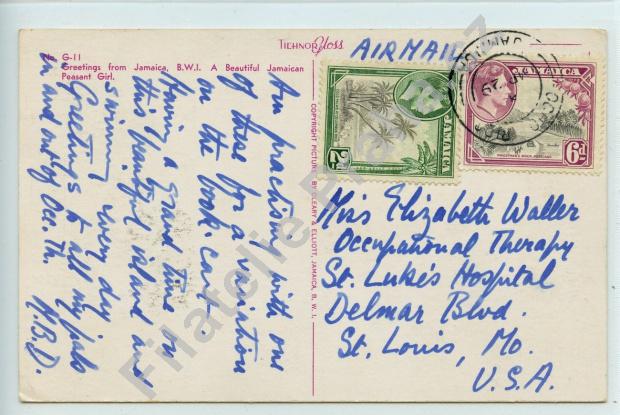 G-11
Greetings from Jamaica, B.W.I. A Beautiful Jamaican
Peasant Girl.
TICHNOR Gloss
Am practising with one
of these for a variation
on the book-cart.
Having a grand time on
this beautiful island and
swimming every day
Greetings to all my pals
in and out of Occ. Th.
H.B.D.
COPYRIGHT PICTURE BY CLEARY & ELLIOTT, JAMAICA, B. W. I.
AIRMAIL
JAMAICA
2D
JAMAICA
6d
Miss Elizabeth Waller
Occupational Therapy
St. Luke's Hospital
Delmar Blvd.
St. Louis, Mo.
U.S.A.